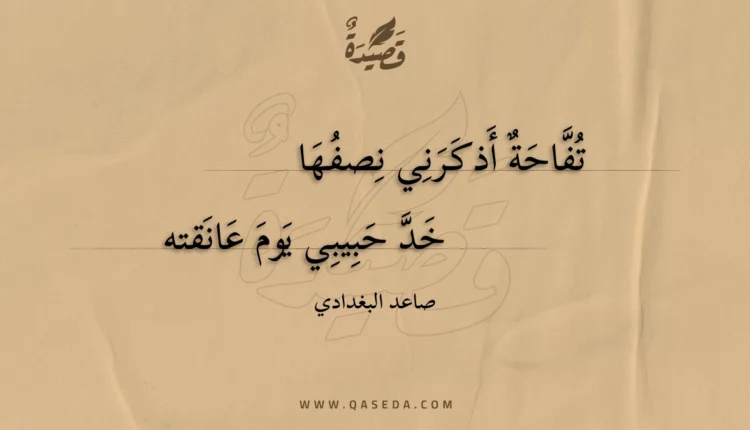 قَصِيدَةٌ
تُفَّاحَةٌ أَذكَرَنِي نِصفُهَا
خَدَّ حَبِيبِي يَومَ عَانَقته
صاعد البغدادي
WWW.QASEDA.COM